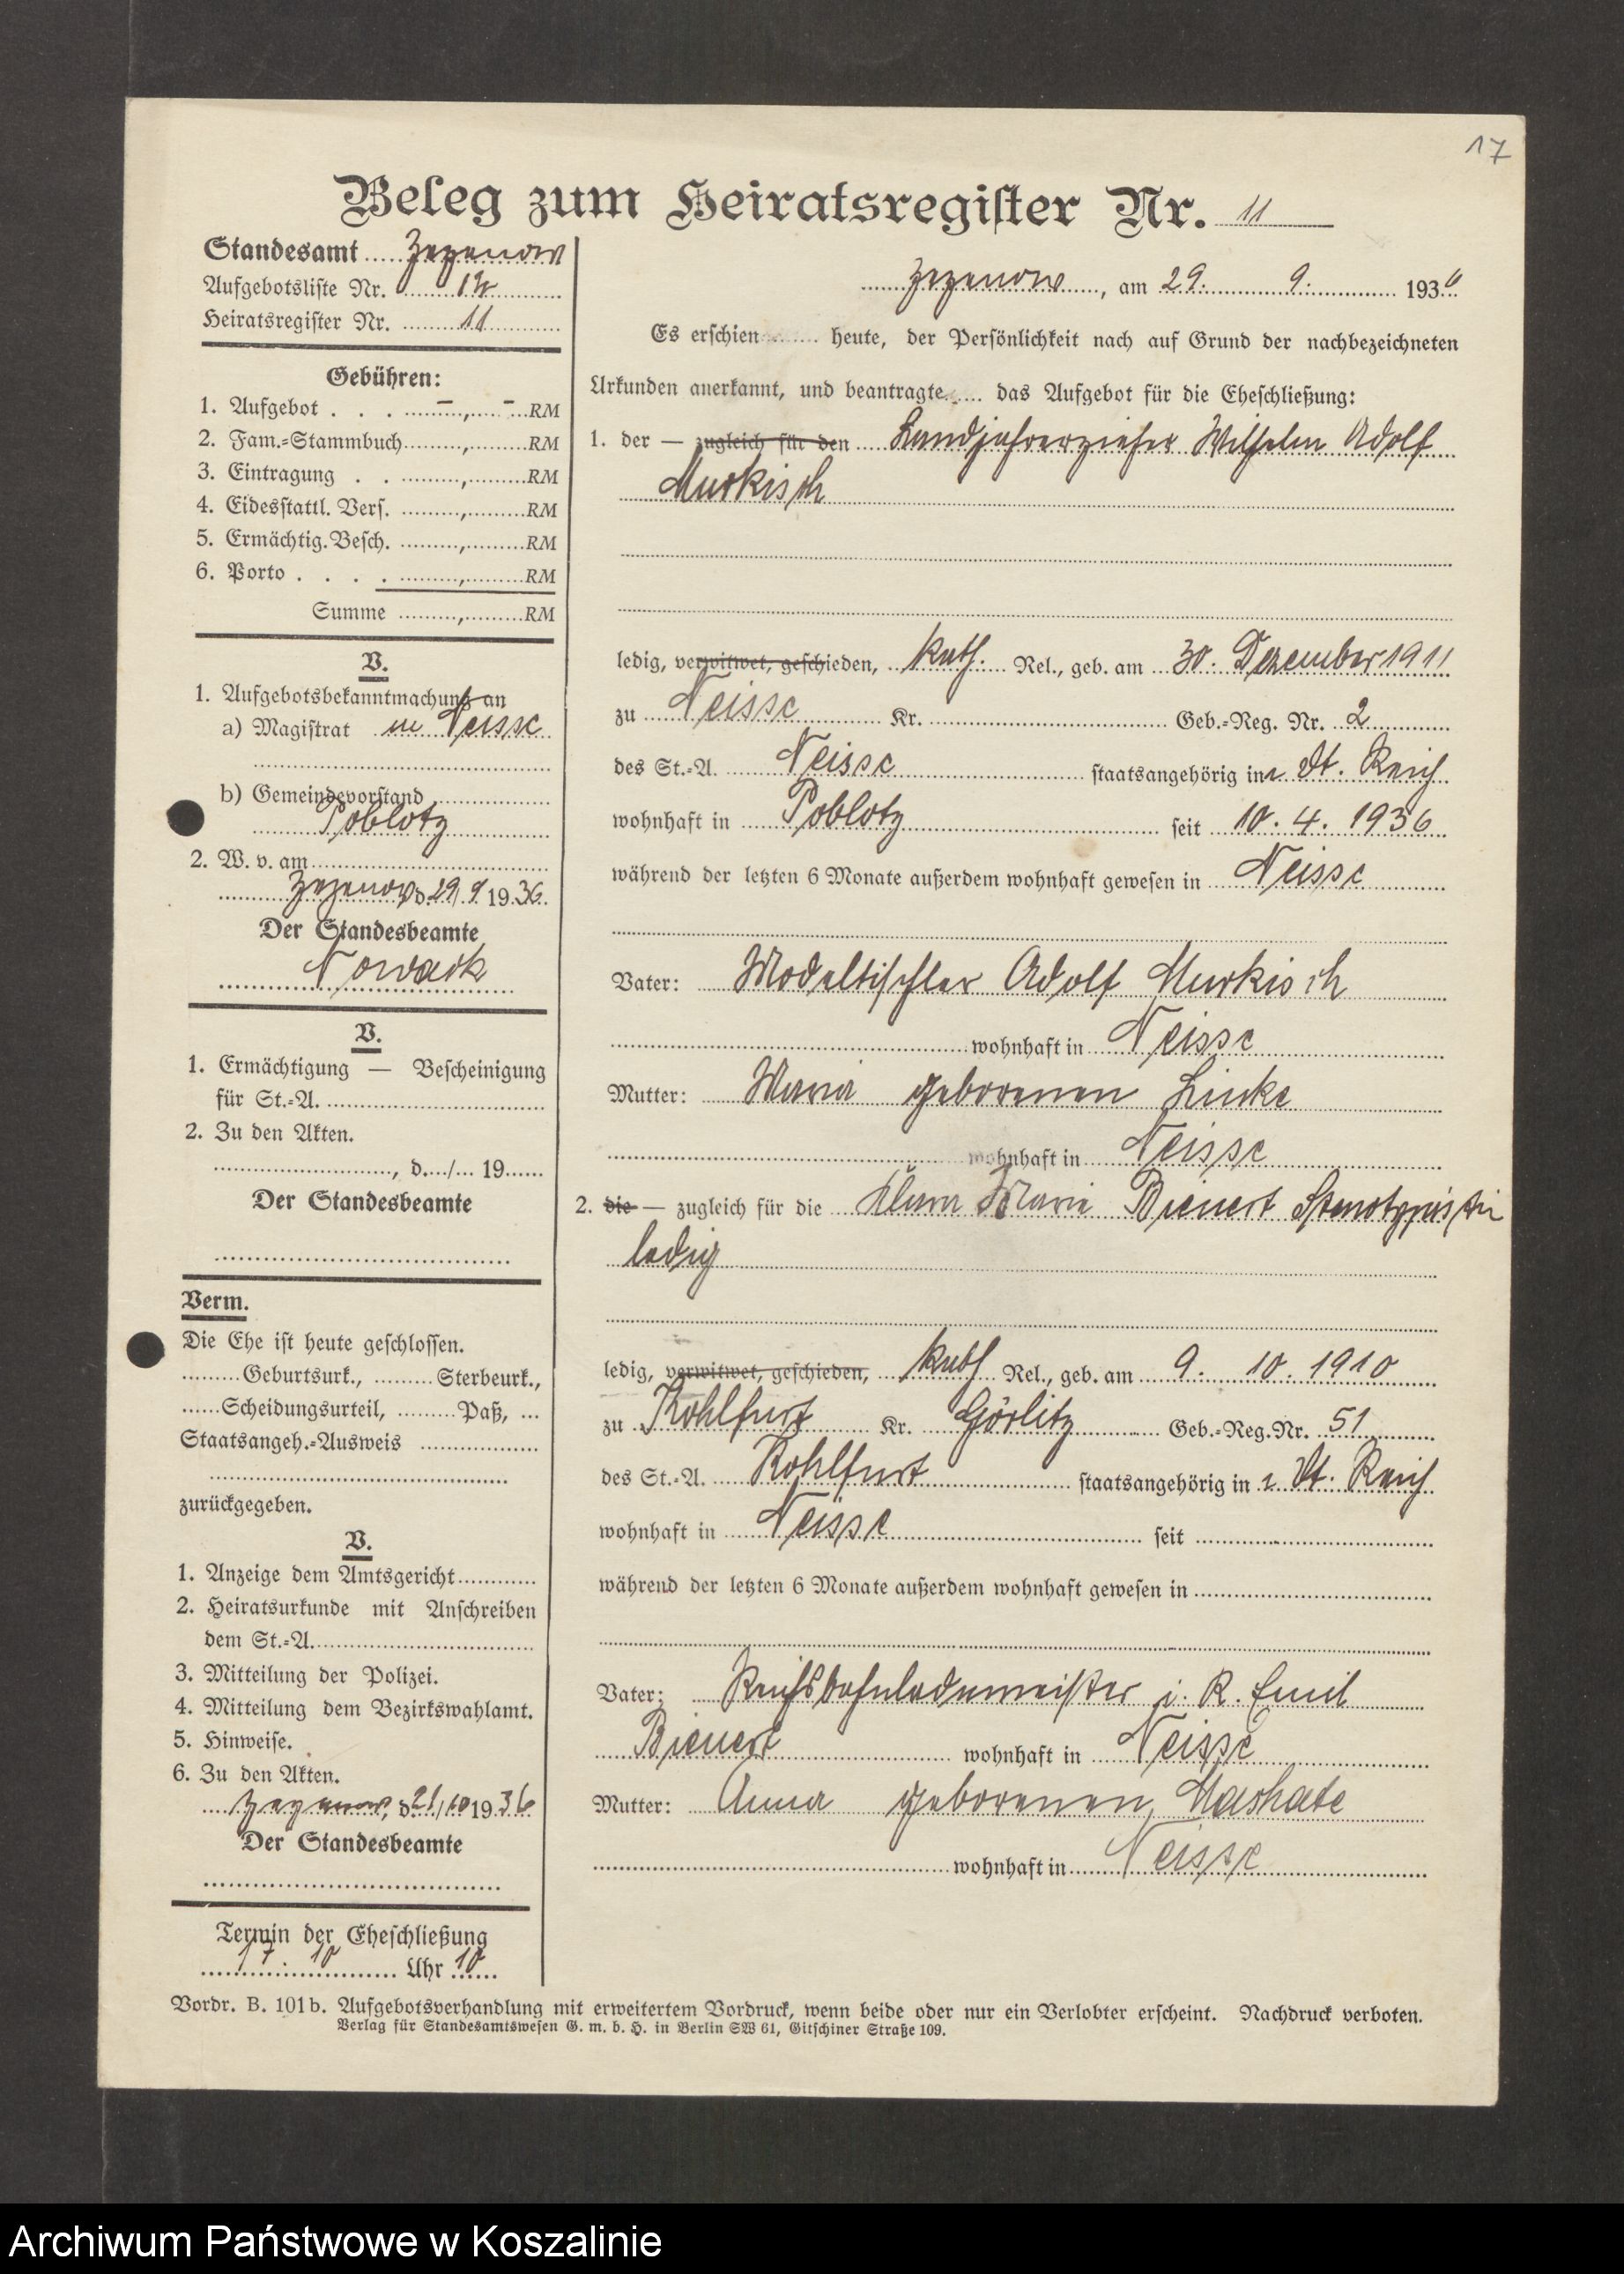 17
Beleg zum Heiratsregister Nr. 11
Standesamt Zezenow
Aufgebotsliste Nr.
Heiratsregister Nr. 11
Gebühren:
1. Aufgebot . . . -,- RM
2. Fam.-Stammbuch , RM
3. Eintragung . . , RM
4. Eidesstattl. Vers. , RM
5. Ermächtig.Besch. , RM
6. Porto . . . . , RM
Summe , RM
V.
1. Aufgebotsbekanntmachung an
a) Magistrat in Neisse
b) Gemeindevorstand
Poblotz
2. W. v. am
Zezenow, d. 29/9 1936.
Der Standesbeamte
Nowack
V.
1. Ermächtigung — Bescheinigung
für St.-A.
2. Zu den Akten.
, d. / 19
Der Standesbeamte
Verm.
Die Ehe ist heute geschlossen.
Geburtsurk., Sterbeurk.,
Scheidungsurteil, Paß,
Staatsangeh.-Ausweis
zurückgegeben.
V.
1. Anzeige dem Amtsgericht
2. Heiratsurkunde mit Anschreiben
dem St.-A.
3. Mitteilung der Polizei.
4. Mitteilung dem Bezirkswahlamt.
5. Hinweise.
6. Zu den Akten.
Zezenow, d. 21/10 1936
Der Standesbeamte
Termin der Eheschließung
17. 10 Uhr 10
Zezenow, am 29. 9. 1936
Es erschien heute, der Persönlichkeit nach auf Grund der nachbezeichneten
Urkunden anerkannt, und beantragte das Aufgebot für die Eheschließung:
1. der — zugleich für den Landjahrerzieher Wilhelm Adolf
Murkisch
ledig, verwitwet, geschieden, kath. Rel., geb. am 30. Dezember 1911
zu Neisse Kr. Geb.-Reg. Nr. 2
des St.-A. Neisse staatsangehörig in Dt. Reich
wohnhaft in Poblotz seit 10. 4. 1936
während der letzten 6 Monate außerdem wohnhaft gewesen in Neisse
Vater: Modeltischler Adolf Murkisch
wohnhaft in Neisse
Mutter: Maria geborenen Linke
wohnhaft in Neisse
2. die — zugleich für die Klara Maria Bienert Stenotypistin
ledig
ledig, verwitwet, geschieden, kath Rel., geb. am 9. 10. 1910
zu Kohlfurt Kr. Görlitz Geb.-Reg.Nr. 51
des St.-A. Kohlfurt staatsangehörig in Dt. Reich
wohnhaft in Neisse seit
während der letzten 6 Monate außerdem wohnhaft gewesen in
Vater: Reichsbahnlademeister i. R. Emil
Bienert wohnhaft in Neisse
Mutter: Anna geborenen
wohnhaft in Neisse
Vordr. B. 101b. Aufgebotsverhandlung mit erweitertem Vordruck, wenn beide oder nur ein Verlobter erscheint. Nachdruck verboten.
Verlag für Standesamtswesen G. m. b. H. in Berlin SW 61, Gitschiner Straße 109.
Archiwum Państwowe w Koszalinie